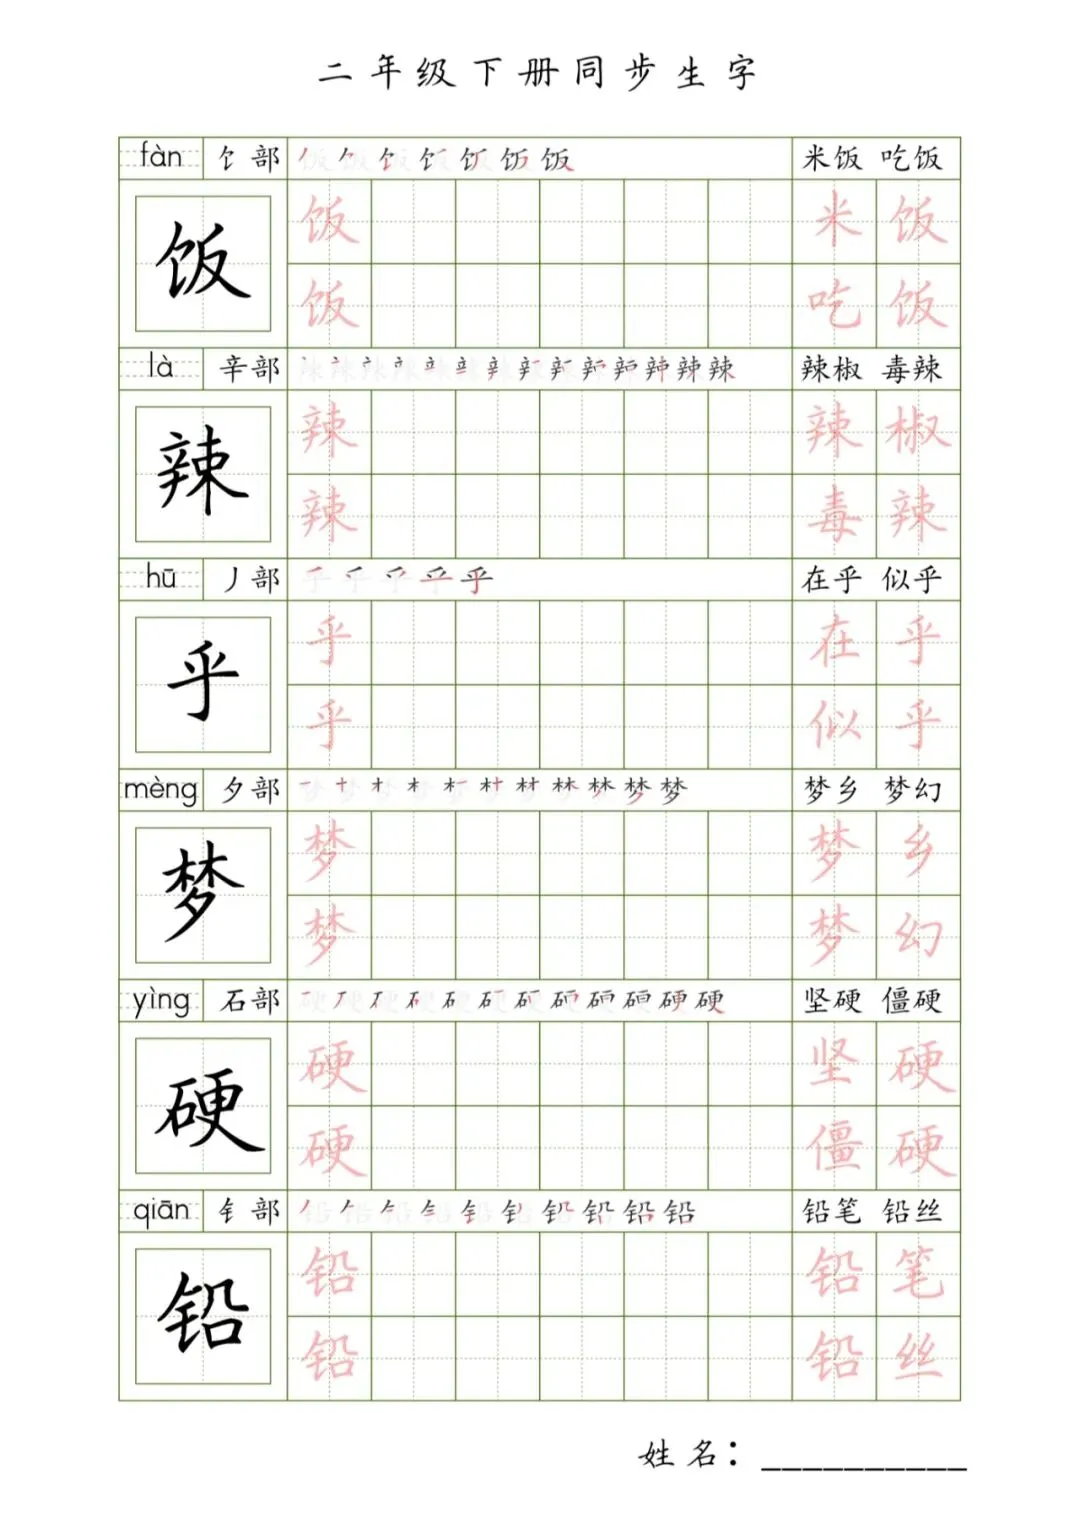 二年级下册同步生字
fàn 饣部 饭 米饭 吃饭
饭 饭 米饭
饭 吃饭
là 辛部 辣 辣椒 毒辣
辣 辣 辣椒
辣 毒辣
hū 丿部 乎 在乎 似乎
乎 乎 在乎
乎 似乎
mèng 夕部 梦 梦乡 梦幻
梦 梦 梦乡
梦 梦幻
yìng 石部 硬 坚硬 僵硬
硬 硬 坚硬
硬 僵硬
qiān 钅部 铅 铅笔 铅丝
铅 铅 铅笔
铅 铅丝
姓名：__________